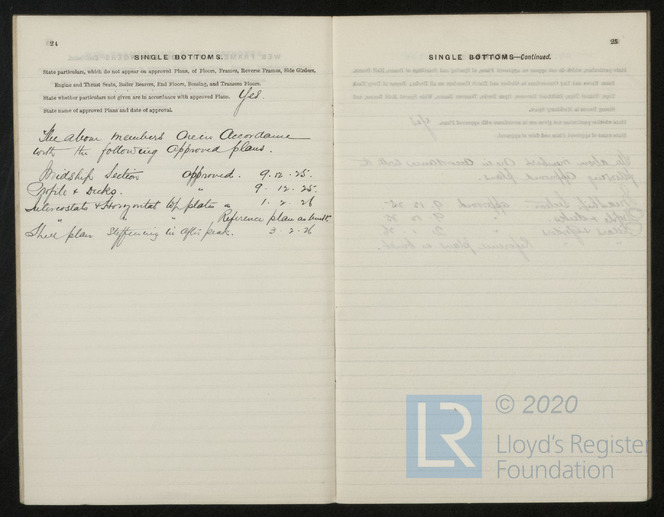 24
SINGLE BOTTOMS.
State particulars, which do not appear on approved Plans, of Floors, Frames, Reverse Frames, Side Girders,
Engine and Thrust Seats, Boiler Bearers, End Floors, Bossing, and Transom Floors.
State whether particulars not given are in accordance with approved Plans. Yes
State name of approved Plans and date of approval.
The above members are in accordance
with the following approved plans.
Midship Section approved. 9.12.25.
Profile & Decks. " 9.12.25.
Intercostals & Horizontal top plates " 1.2.26
" " Reference plan as built.
Shell plan stiffening in after peak. 3.2.26
25
SINGLE BOTTOMS—Continued.
LR
© 2020
Lloyd's Register
Foundation